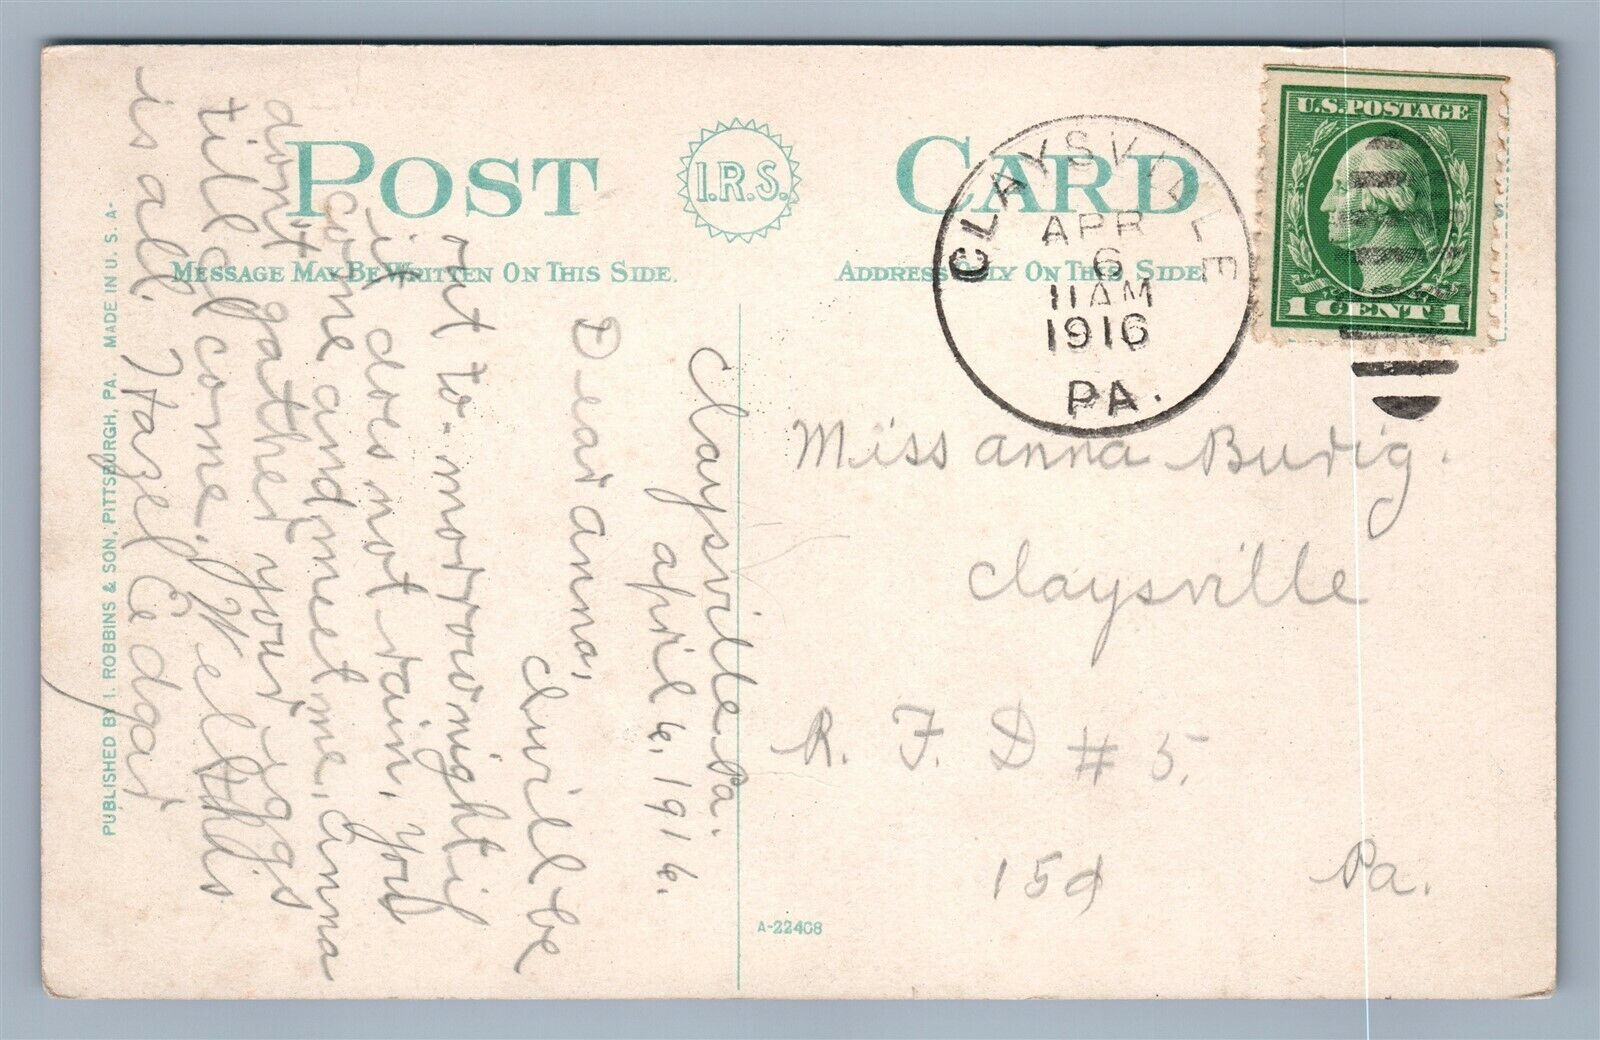 POST CARD
I.R.S.
MESSAGE MAY BE WRITTEN ON THIS SIDE.
ADDRESS ONLY ON THIS SIDE
CLAYSVILLE
APR
6
11 AM
1916
PA.
U.S. POSTAGE
1 CENT 1
Claysville Pa.
april 6, 1916.
Dear anna,
I will be
out to-morrow night if
it does not rain, you
come and meet me, anna
dont gather your eggs
till I come. Well this
is all. Hazel Edgar
Miss anna Budig.
Claysville
R. F. D # 5.
Pa.
15¢
A-22408
PUBLISHED BY I. ROBBINS & SON, PITTSBURGH, PA. MADE IN U. S. A-